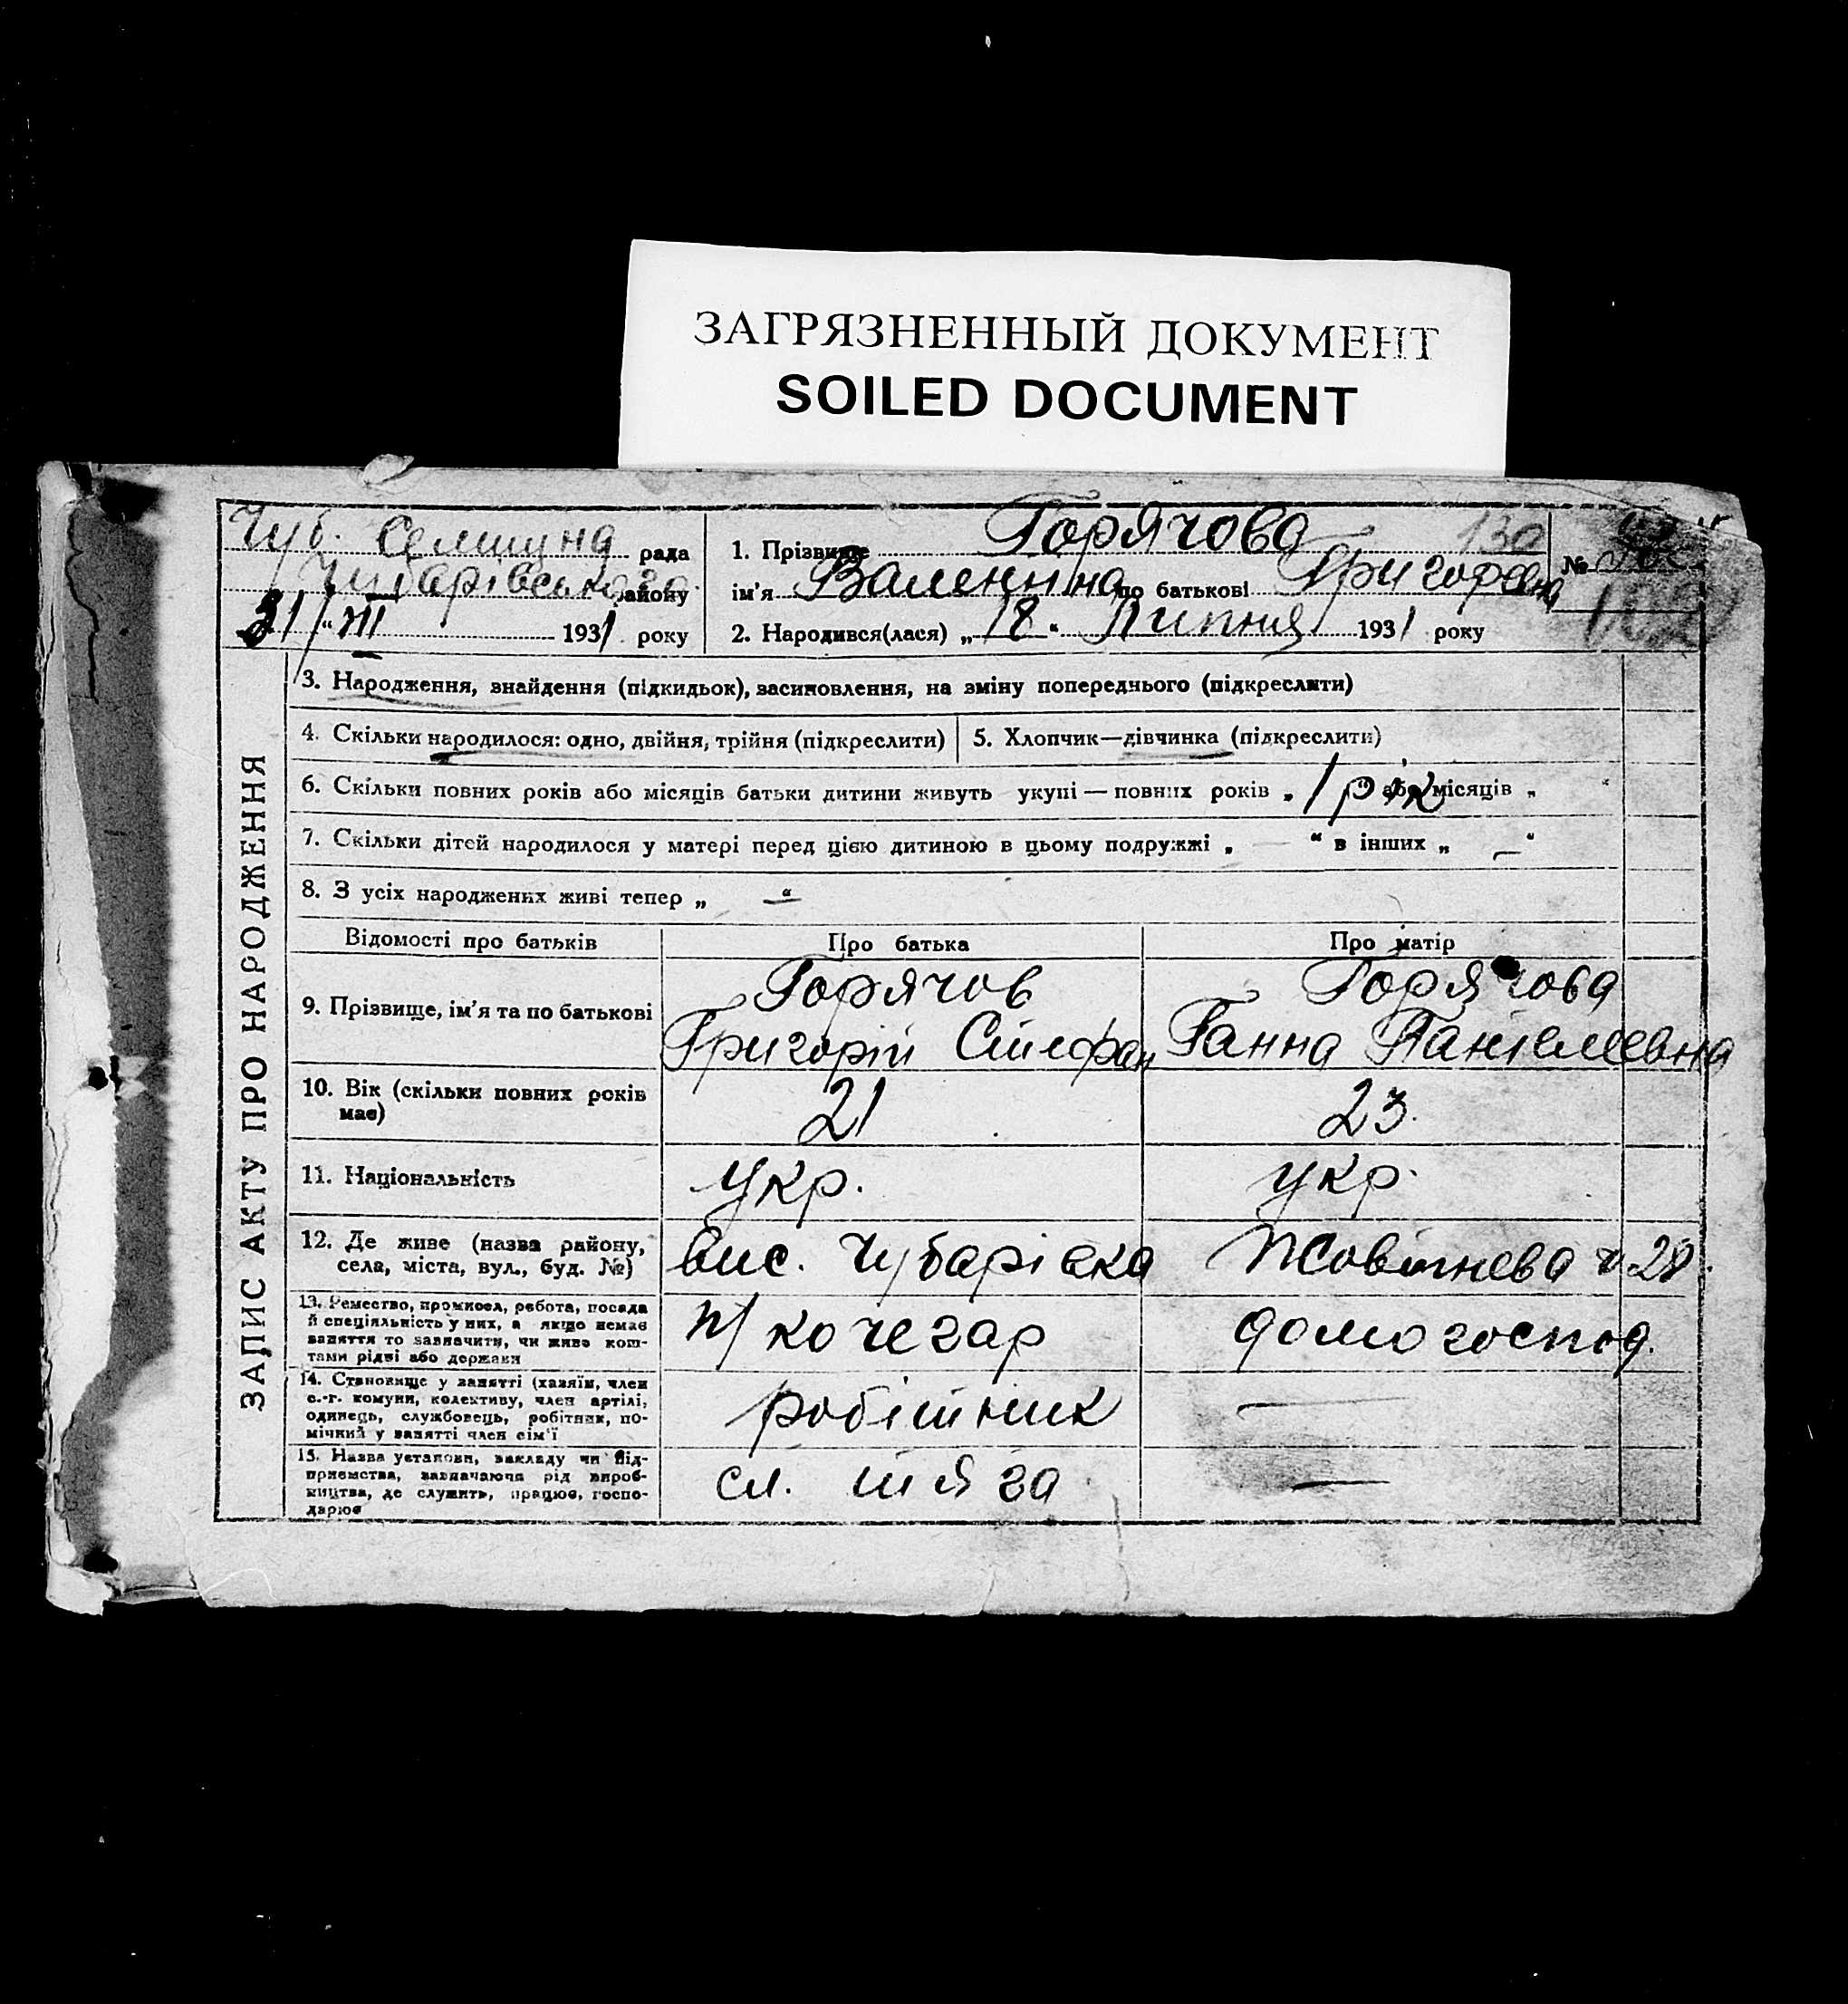 ЗАГРЯЗНЕННЫЙ ДОКУМЕНТ
SOILED DOCUMENT
Чуб. Селищна рада
Чубарівського району
31/VII 1931 року
1. Прізвище Горячова 130
ім'я Валентина по батькові Григоревна
2. Народився(лася) „18“ Липня 1931 року
№
102
ЗАПИС АКТУ ПРО НАРОДЖЕННЯ
3. Народження, знайдення (підкидьок), засиновлення, на зміну попереднього (підкреслити)
4. Скільки народилося: одно, двійня, трійня (підкреслити)
5. Хлопчик—дівчинка (підкреслити)
6. Скільки повних років або місяців батьки дитини живуть укупі — повних років „ 1 рік “ або місяців „ “
7. Скільки дітей народилося у матері перед цією дитиною в цьому подружжі „ — “ в інших „ — “
8. З усіх народжених живі тепер „ — “
Відомості про батьків
Про батька
Про матір
9. Прізвище, ім'я та по батькові
Горячов
Григорій Стефан
Горячова
Ганна Пантелеевна
10. Вік (скільки повних років
має)
21
23.
11. Національність
укр.
укр.
12. Де живе (назва району,
села, міста, вул., буд. №)
вис. Чубарівка
Жовтнева 28.
13. Ремество, промисел, робота, посада
й спеціяльність у них, а якщо немає
заняття то зазначити, чи живе кош-
тами рідні або держави
п/кочегар
домогоспод.
14. Становище у занятті (хазяїн, член
с.-г. комуни, колективу, член артілі,
одинець, службовець, робітник, по-
мічний у занятті член сім'ї
робітник
—
15. Назва установи, закладу чи під-
приємства, зазначаючи рід вироб-
ництва, де служить, працює, госпо-
дарює
сл. тяга
—